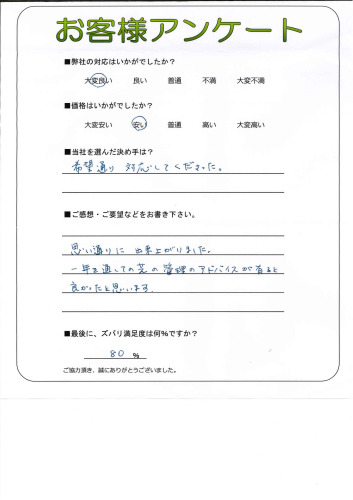 お客様アンケート
■弊社の対応はいかがでしたか？
大変良い 良い 普通 不満 大変不満
■価格はいかがでしたか？
大変安い 安い 普通 高い 大変高い
■当社を選んだ決め手は？
希望通り 対応してくださった。
■ご感想・ご要望などをお書き下さい。
思い通りに 出来上がりました。
一年を通しての芝の管理のアドバイスが有ると
良かったと思います。
■最後に、ズバリ満足度は何％ですか？
80 %
ご協力頂き、誠にありがとうございました。